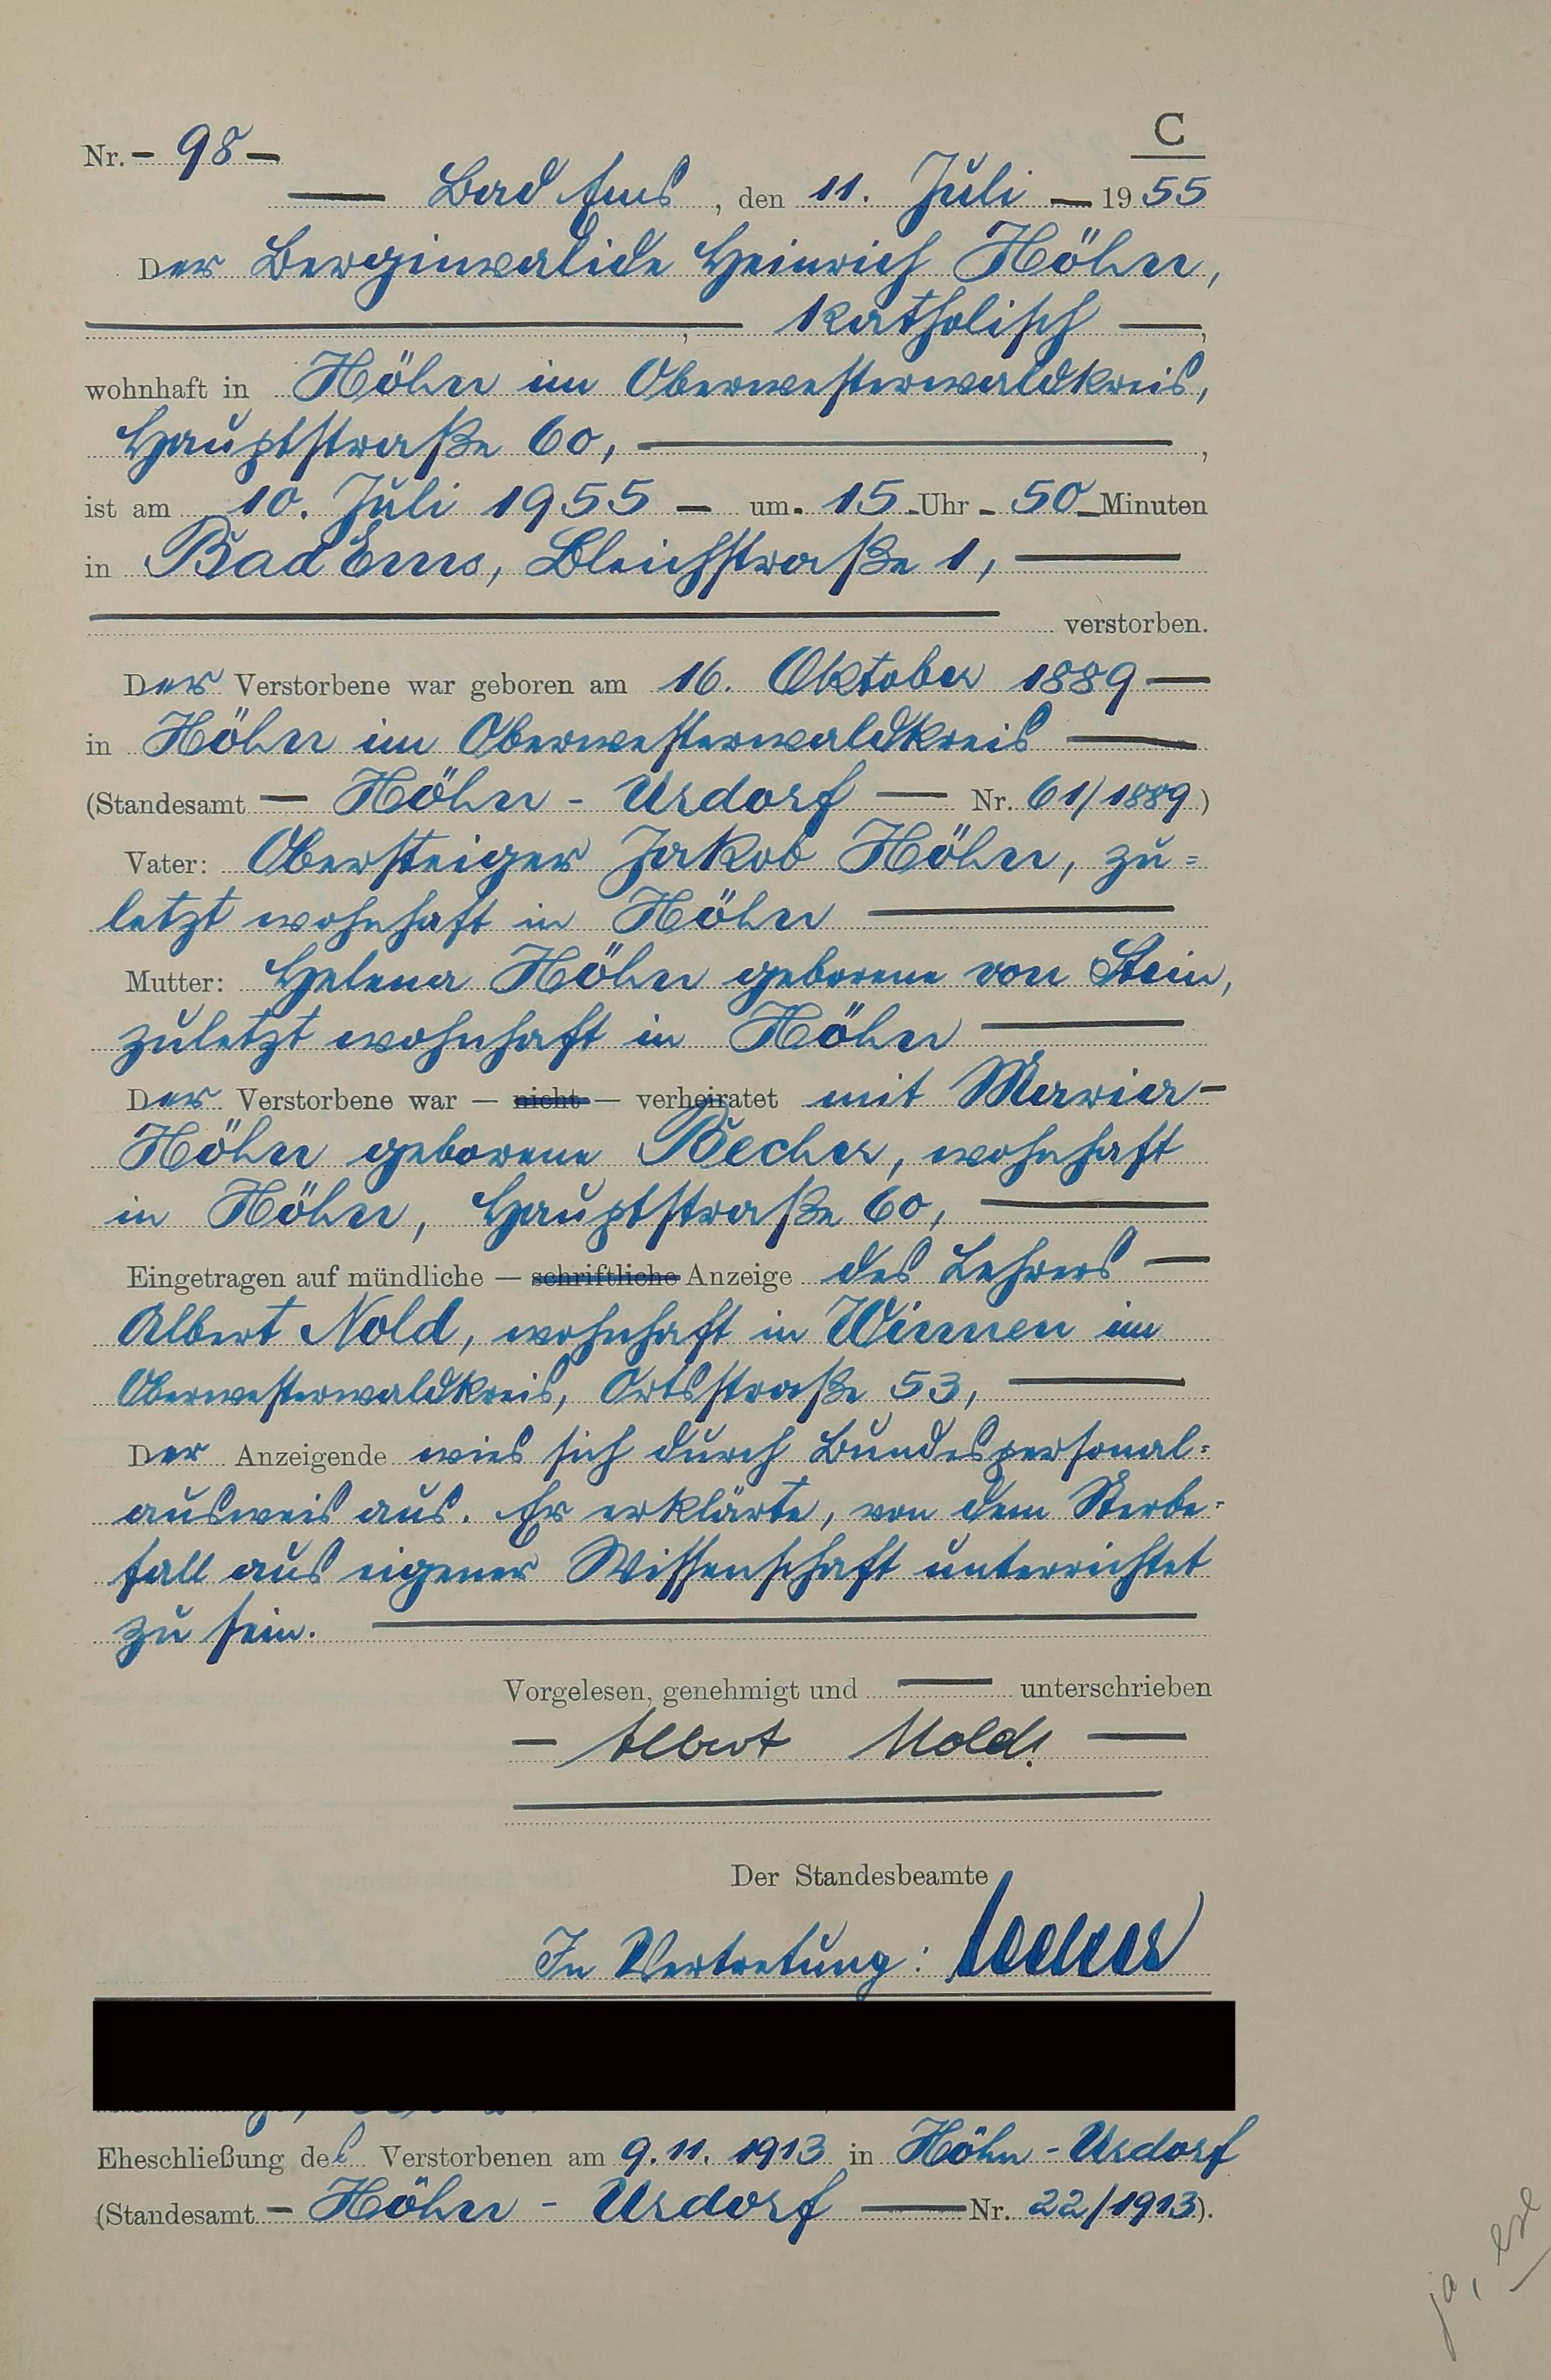 C
Nr. - 98 -
Bad Ems, den 11. Juli 1955
Der Berginvalide Heinrich Höhn,
, katholisch ,
wohnhaft in Höhn im Oberwesterwaldkreis,
Hauptstraße 60, ,
ist am 10. Juli 1955 um 15 Uhr 50 Minuten
in Bad Ems, Bleichstraße 1,
verstorben.
Der Verstorbene war geboren am 16. Oktober 1889
in Höhn im Oberwesterwaldkreis
(Standesamt Höhn - Urdorf Nr. 61/1889)
Vater: Obersteiger Jakob Höhn, zu=
letzt wohnhaft in Höhn
Mutter: Helena Höhn geborene von Stein,
zuletzt wohnhaft in Höhn
Der Verstorbene war — nicht — verheiratet mit Maria
Höhn geborene Becher, wohnhaft
in Höhn, Hauptstraße 60,
Eingetragen auf mündliche — schriftliche Anzeige des Lehrers
Albert Nold, wohnhaft in Winnen im
Oberwesterwaldkreis, Ortsstraße 53,
Der Anzeigende wies sich durch Bundespersonal=
ausweis aus. Er erklärte, von dem Sterbe=
fall aus eigener Wissenschaft unterrichtet
zu sein.
Vorgelesen, genehmigt und unterschrieben
Albert Nold.
Der Standesbeamte
In Vertretung:
Eheschließung des Verstorbenen am 9.11.1913 in Höhn-Urdorf
(Standesamt Höhn - Urdorf Nr. 22/1913).
ja,